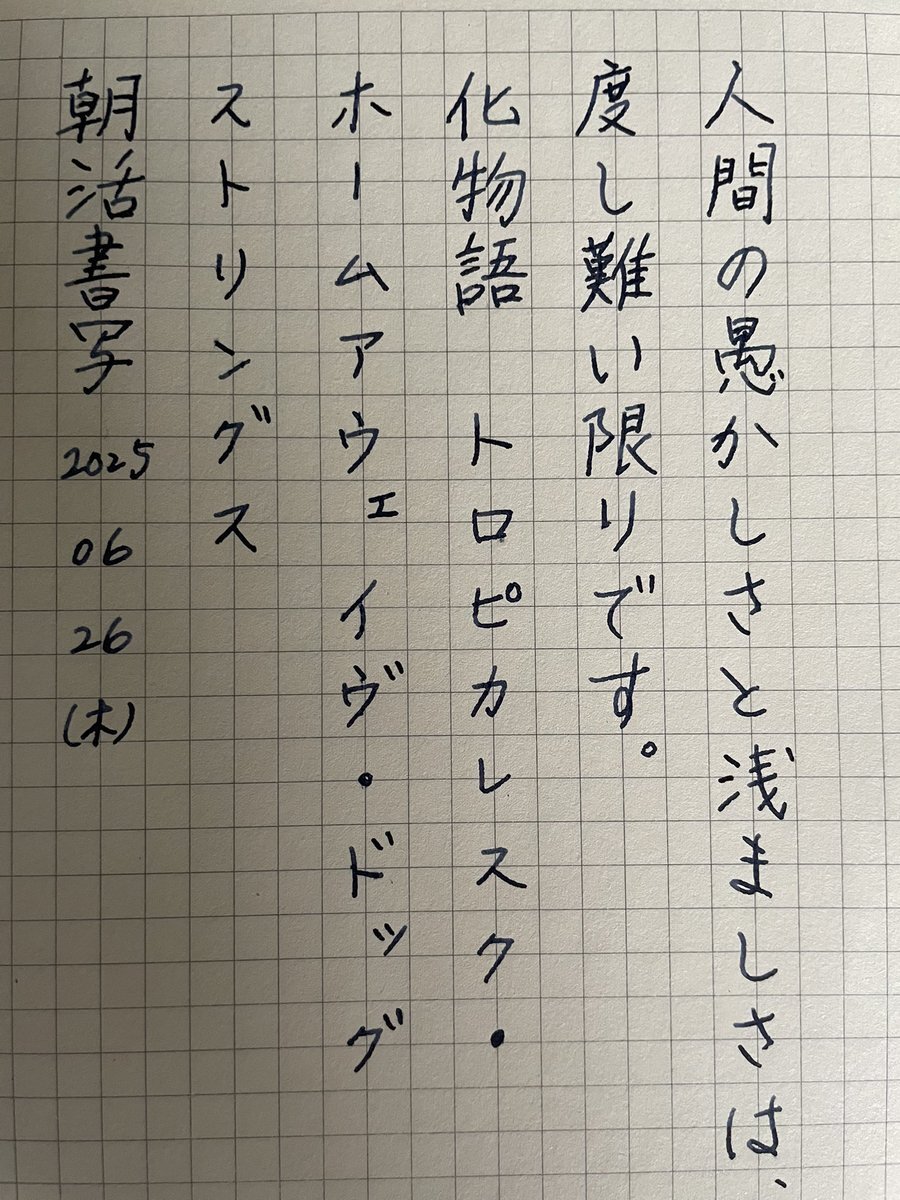 人間の愚かしさと浅ましさは、
度し難い限りです。
化物語　トロピカレスク・
ホームアウェイヴ・ドッグ
ストリングス
朝活書写 2025 06 26 (木)